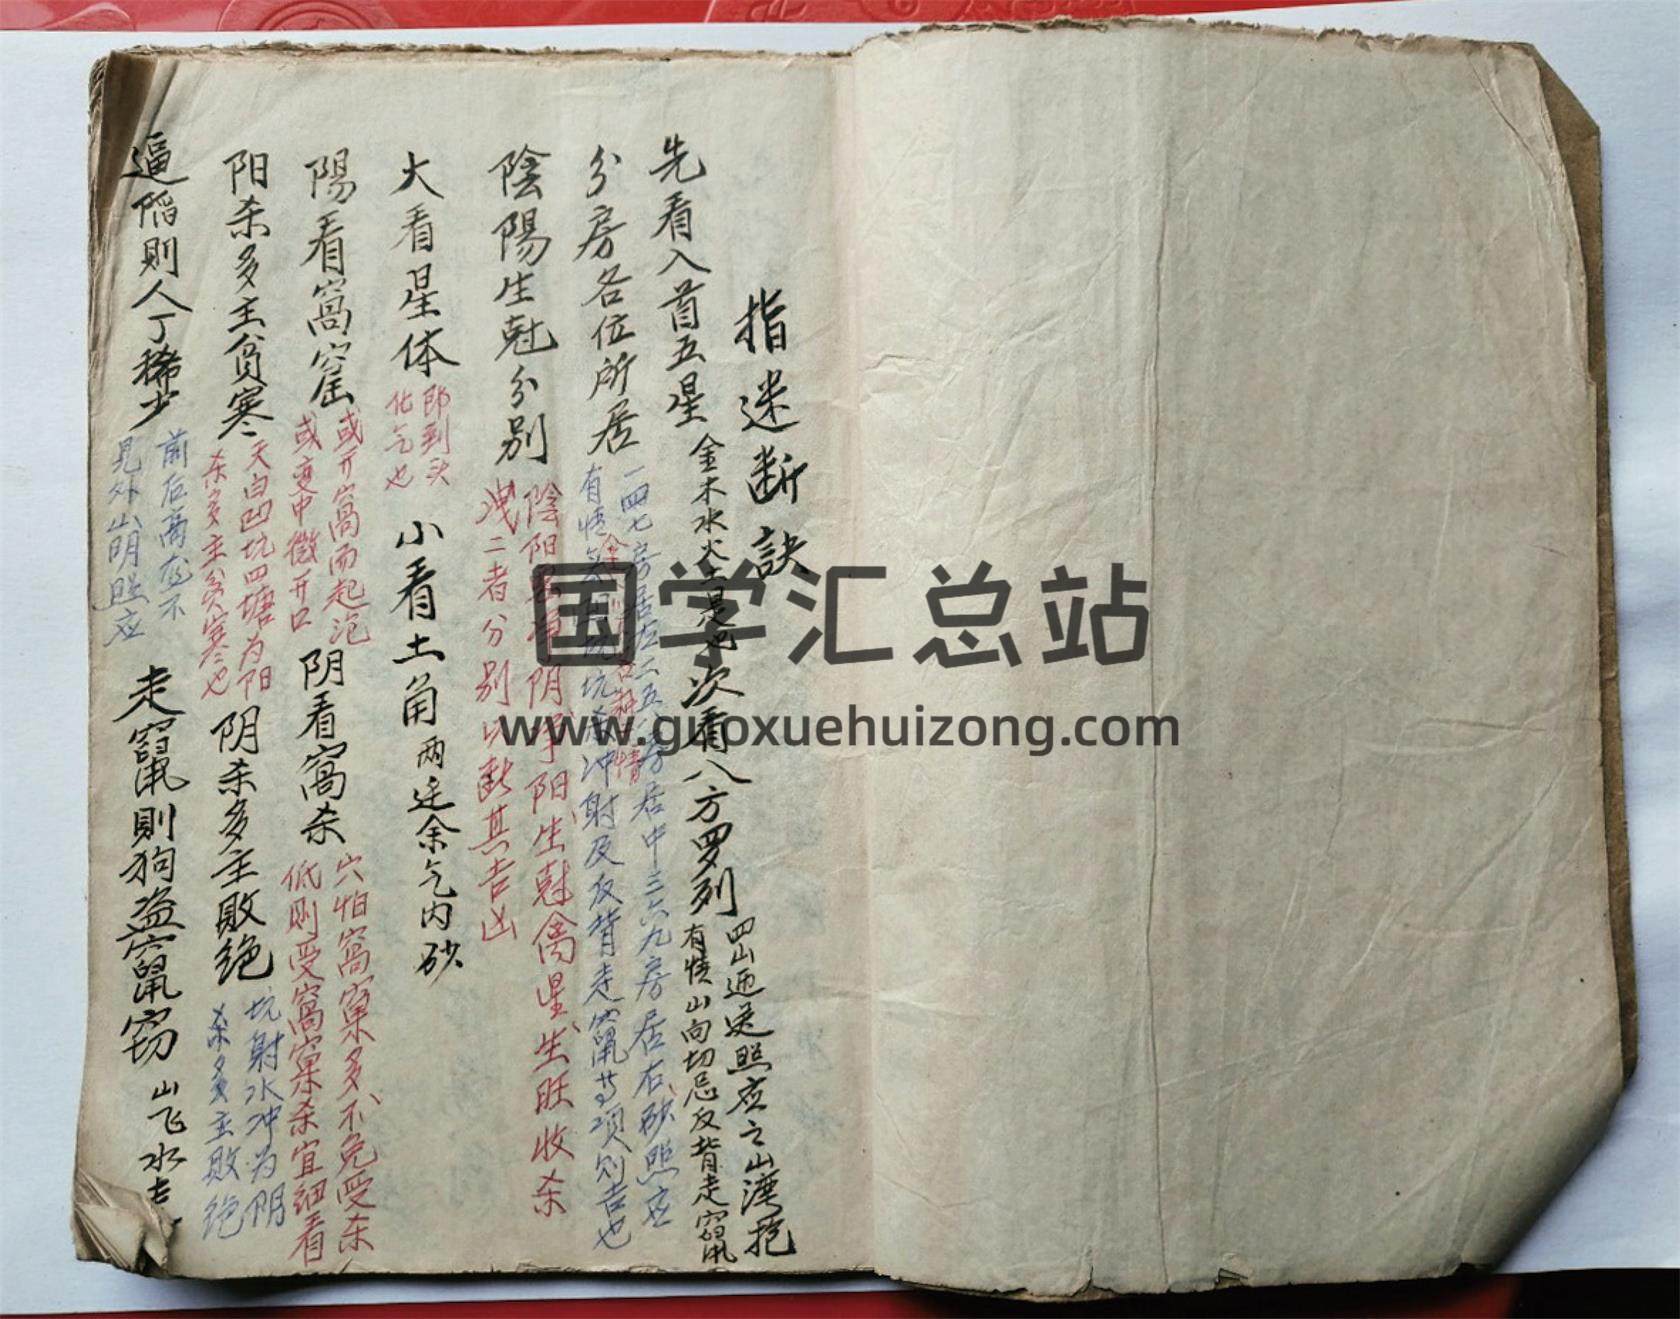 指迷断訣
先看入首五星
金木水火土是也
次看八方罗列
四山迎送照应之山湾抱
有情山向切忌反背走竄
分房各位所居
一四七房居左二五八房居中三六九房居右砂照应
有情
坑杀冲射及反背走竄等项则吉也
陰陽生尅分别
陰阳
阴
阳生尅禽星生旺收杀
洩二者分别以断其吉凶
大看星体
即到头
化气也
小看土角
两边余气内砂
陽看窩窟
或开窩而起泡
或变中微开口
阴看窩杀
穴怕窩窠多不免受杀
低则受窩窠杀宜细看
阳杀多主贫寒
天白凹坑四塘为阳
杀多主贫寒也
阴杀多主败绝
坑射水冲为阴
杀多主败绝
逼陷則人丁稀少
前后高应不
見外山明照应
走竄則狗盗竄窃
山飞水走
国学汇总站
www.guoxuehuizong.com